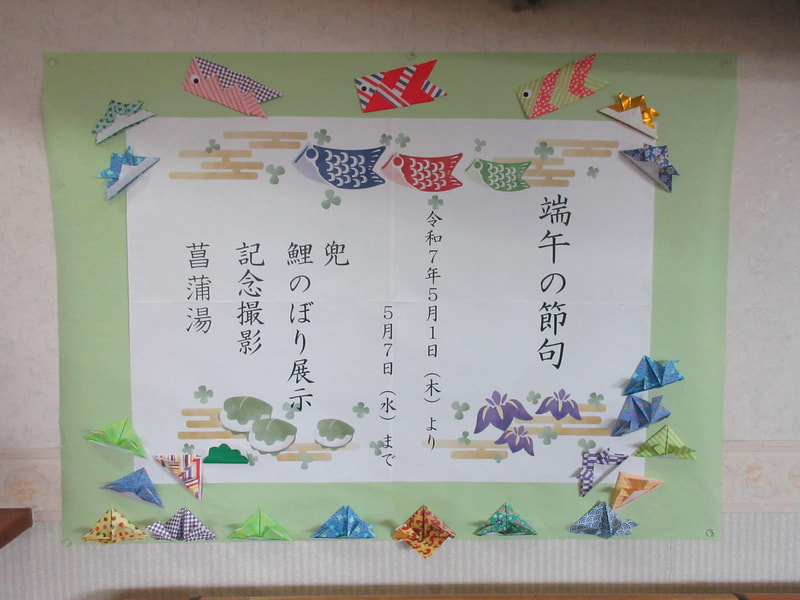 端午の節句
令和７年５月１日（木）より
５月７日（水）まで
兜
鯉のぼり展示
記念撮影
菖蒲湯